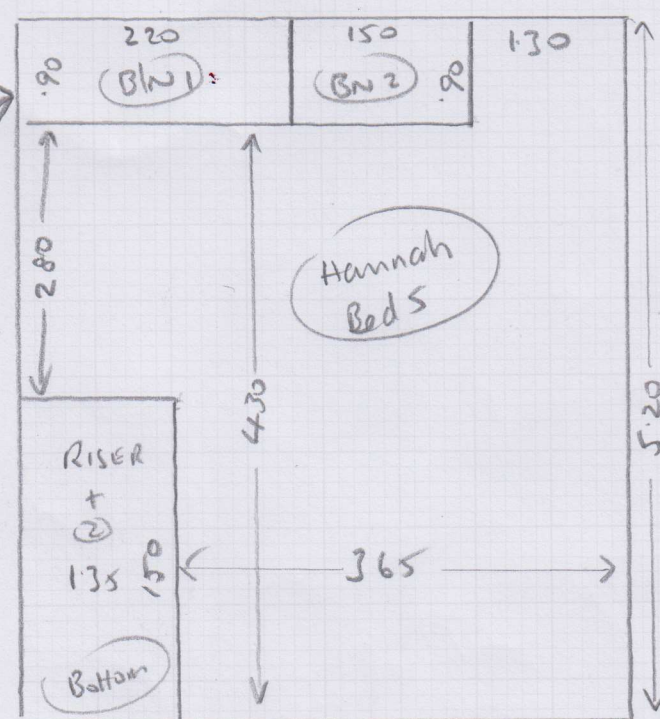 220
150
1.30
.90
BN1
BN2
.90
280
Hannah
Bed 5
430
5.20
RISER
+
2
1.35
150
365
Bottom